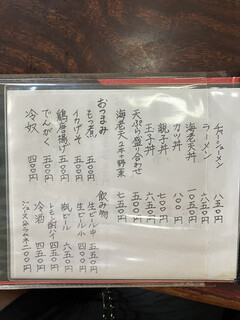 チャーシューメン 八五〇円
ラーメン 六五〇円
海老天丼 一〇五〇円
カツ丼 八〇〇円
親子丼 七〇〇円
玉子丼 六五〇円
天ぷら盛り合わせ
海老天2本+野菜 七五〇円
おつまみ
もつ煮 五〇〇円
イカげそ 五〇〇円
鶏唐揚げ 五〇〇円
でんがく 四〇〇円
冷奴 四〇〇円
飲み物
生ビール中 五五〇円
生ビール小 四〇〇円
瓶ビール 六五〇円
レモン酎ハイ 四五〇円
冷酒 四五〇円
二〇〇円